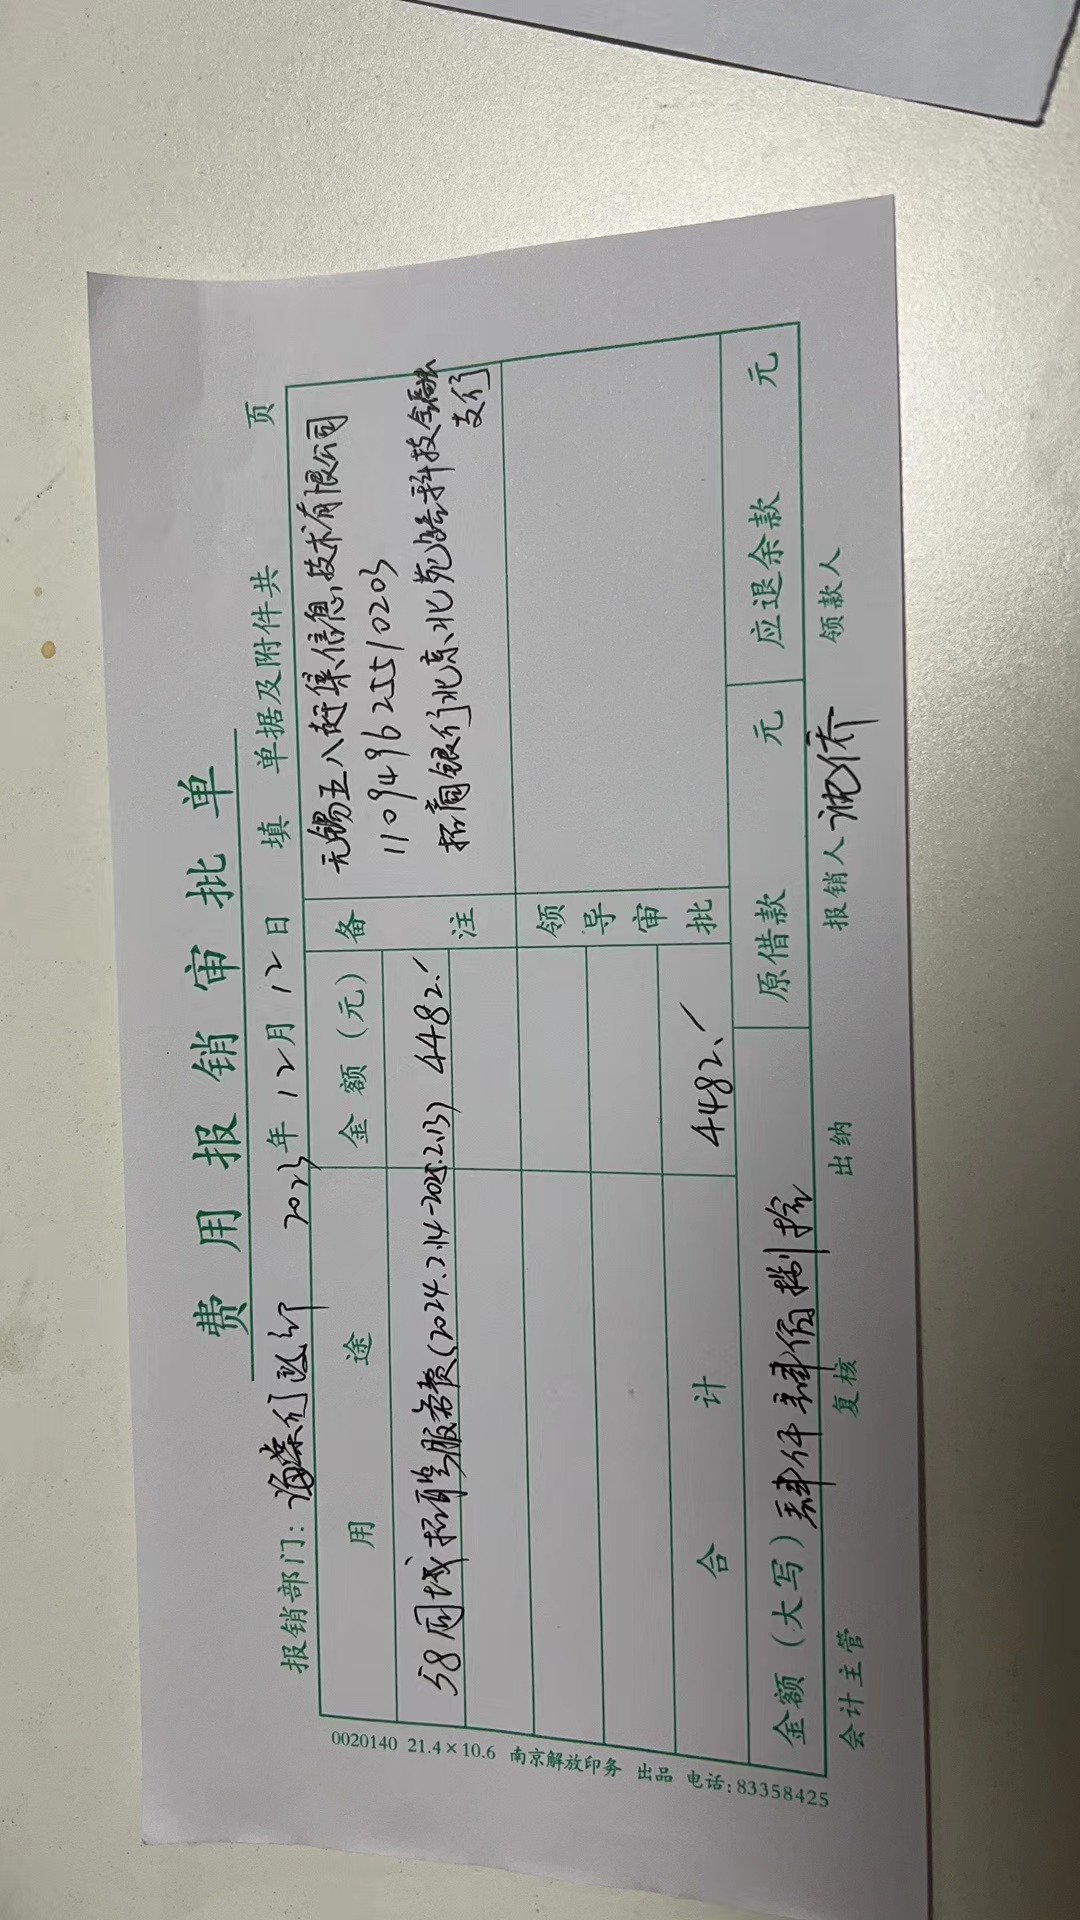 费用报销审批单
报销部门: 2023年12月12日 填 单据及附件共 页
用途 金额(元) 备注 无锡五八赶集信息技术有限公司
110949625510203
招商银行北京北苑路科技金融
支行
58同城招聘服务费(2024.2.14-2025.2.13) 4482.
领导审批
合计 4482.
金额(大写) 肆仟肆佰捌拾 原借款 元 应退余款 元
会计主管 复核 出纳 报销人 领款人
0020140 21.4×10.6 南京解放印务 出品 电话:83358425